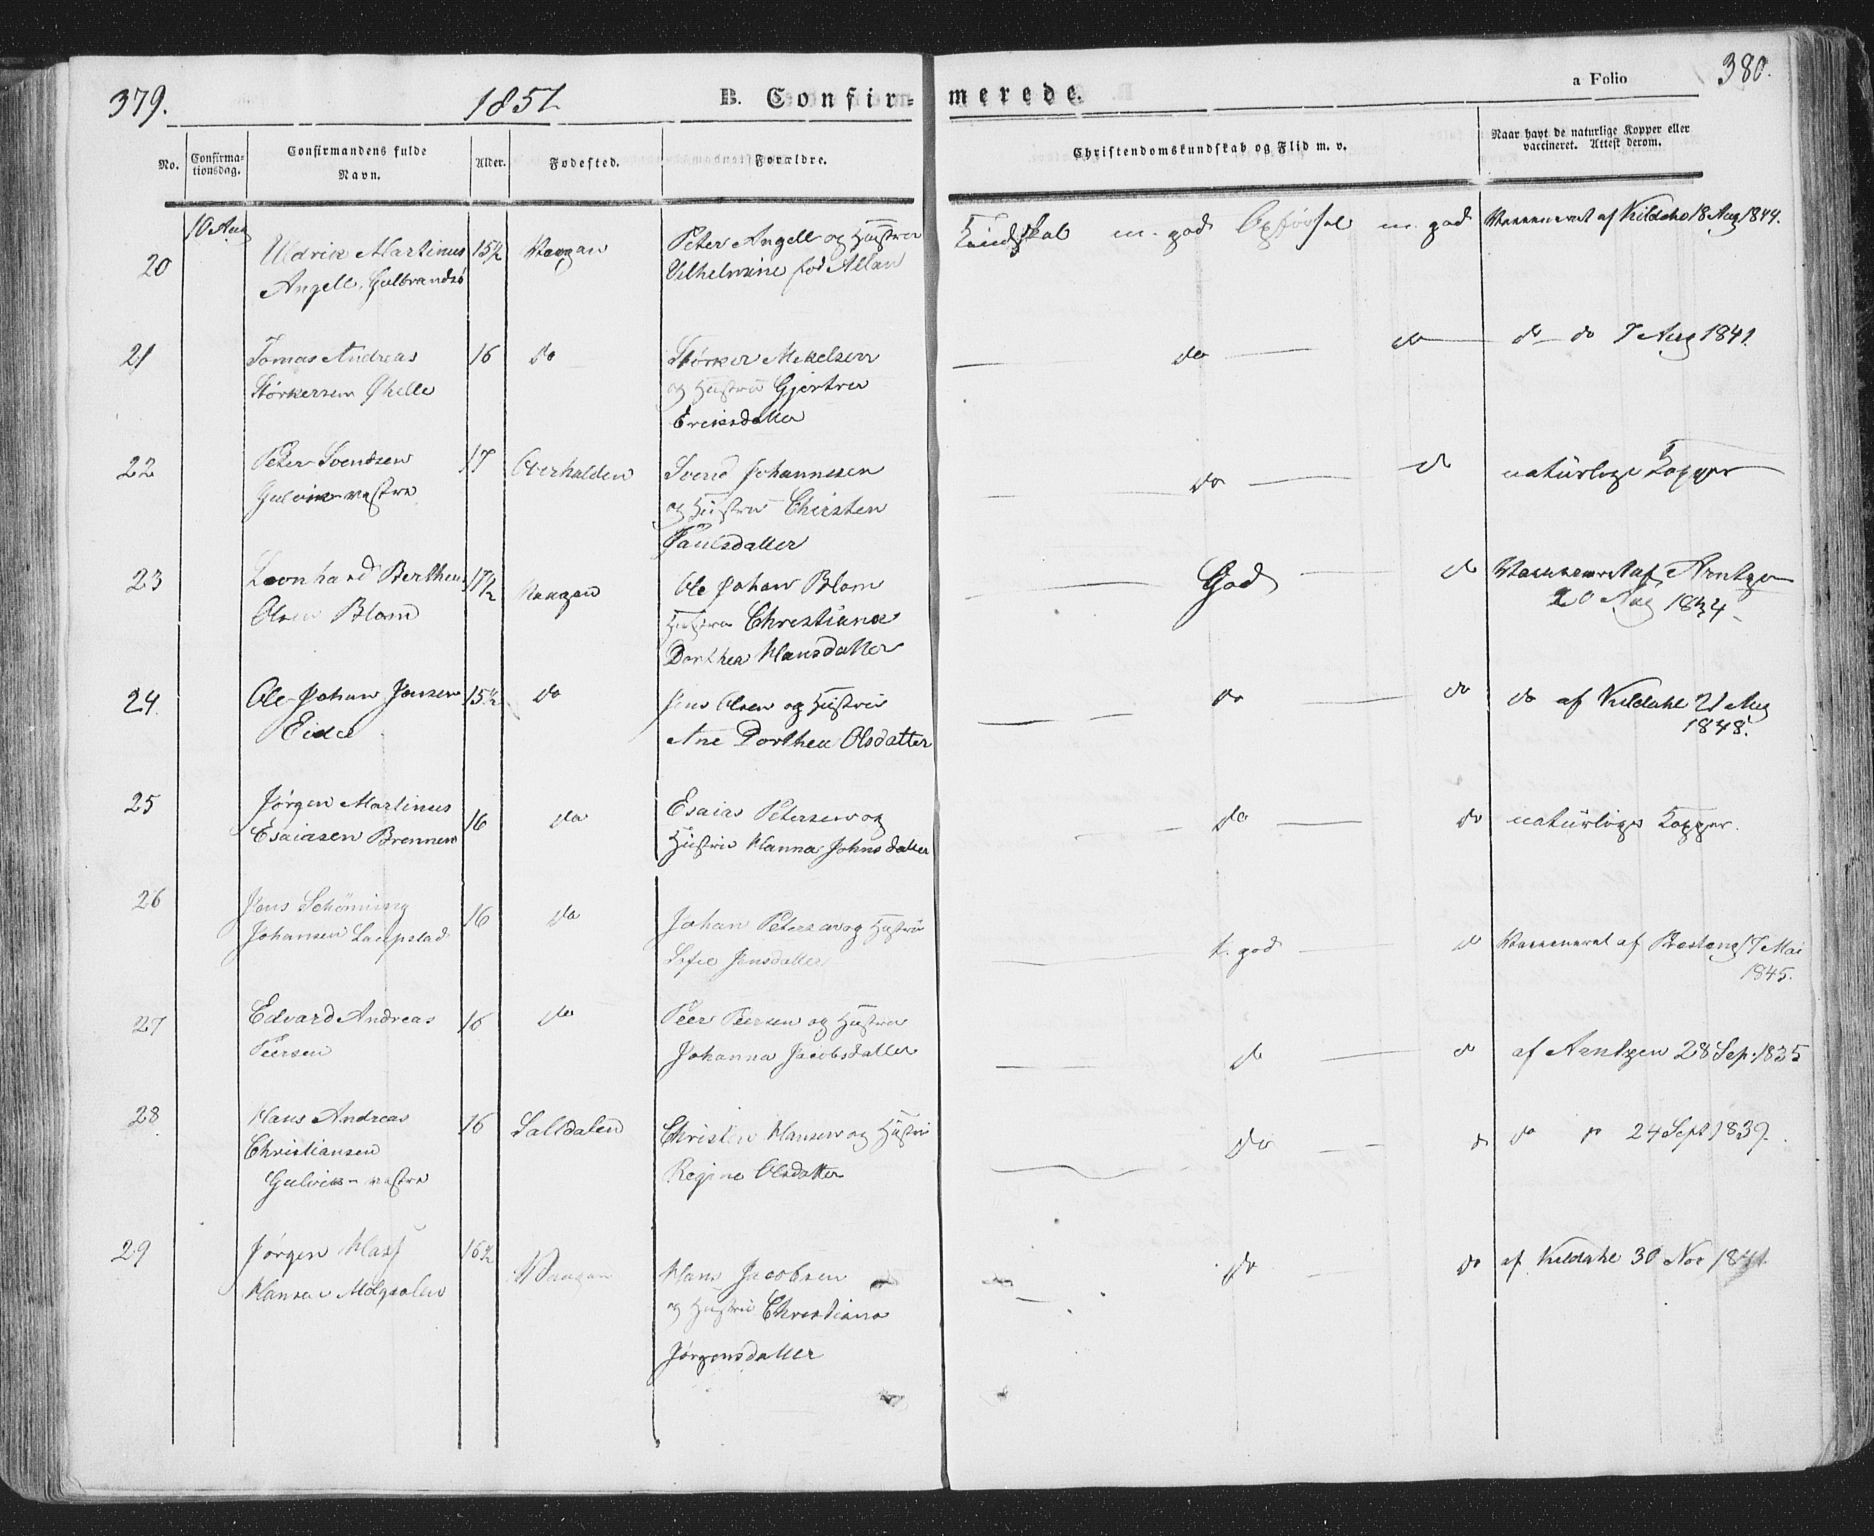 379.
1851
B. Confir-
merede.
a Folio
380.
No.
Confirma-
tionsdag.
Confirmandens fulde
Navn.
Alder.
Fødested.
Forældre.
Christendomskundskab og Flid m. v.
Naar havt de naturlige Kopper eller
vaccineret. Attest derom.
10 Aug
20 Uldrik Martinus 15½ Vaagan Peter Angell og Hustru Kundskab m. god Opførsel m. god Vaccineret af Kildahl 18 Aug 1844.
Angell, Gulbrandsø Vilhelmine fød Allan
21 Tomas Andreas 16 do Størker Mikelsen do do do do 7 Aug 1841.
Størkersen Ørhelle og Hustru Gjertru
Ericsdatter
22 Peter Svendsen 17 Overhalden Svend Johannssen do do naturlige Kopper
Gulvik vestre og Hustru Chirsten
Paulsdatter
23 Leonhard Bertheus 17½ Vaagan Ole Johan Blom God do Vaccineret af Arntzen
Olsen Blom Hustru Christiana 20 Aug 1834.
Dorthea Hansdatter
24. Ole Johan Jensen 15½ do Jens Olsen og Hustru do do do af Kildahl 21 Aug
Eide Ane Dorthea Olsdatter 1848.
25 Jørgen Martinus 16 do Esaias Petersen og do do naturlige Kopper.
Esaiasen Brennen Hustru Hanna Johnsdatter
26 Jens Schönning 16 do Johan Petersen og Hustru t. god do Vaccineret af 17 Mai
Johansen Laupstad Sofie Jensdatter 1845.
27 Edvard Andreas 16 do Peer Peersen og Hustru do do af Arntzen 28 Sep. 1835
Peersen Johanna Jacobsdatter
28 Hans Andreas 16 Saltdalen Christen Hansen og Hustru do do do 24 Sept 1839.
Christiansen Regine Olsdatter
Gulvik vestre
29 Jørgen 16½ Vaagan Hans Jacobsen do do af Kildahl 30 Nov 1841.
Hansen Molysolen og Hustru Christiana
Jørgensdatter